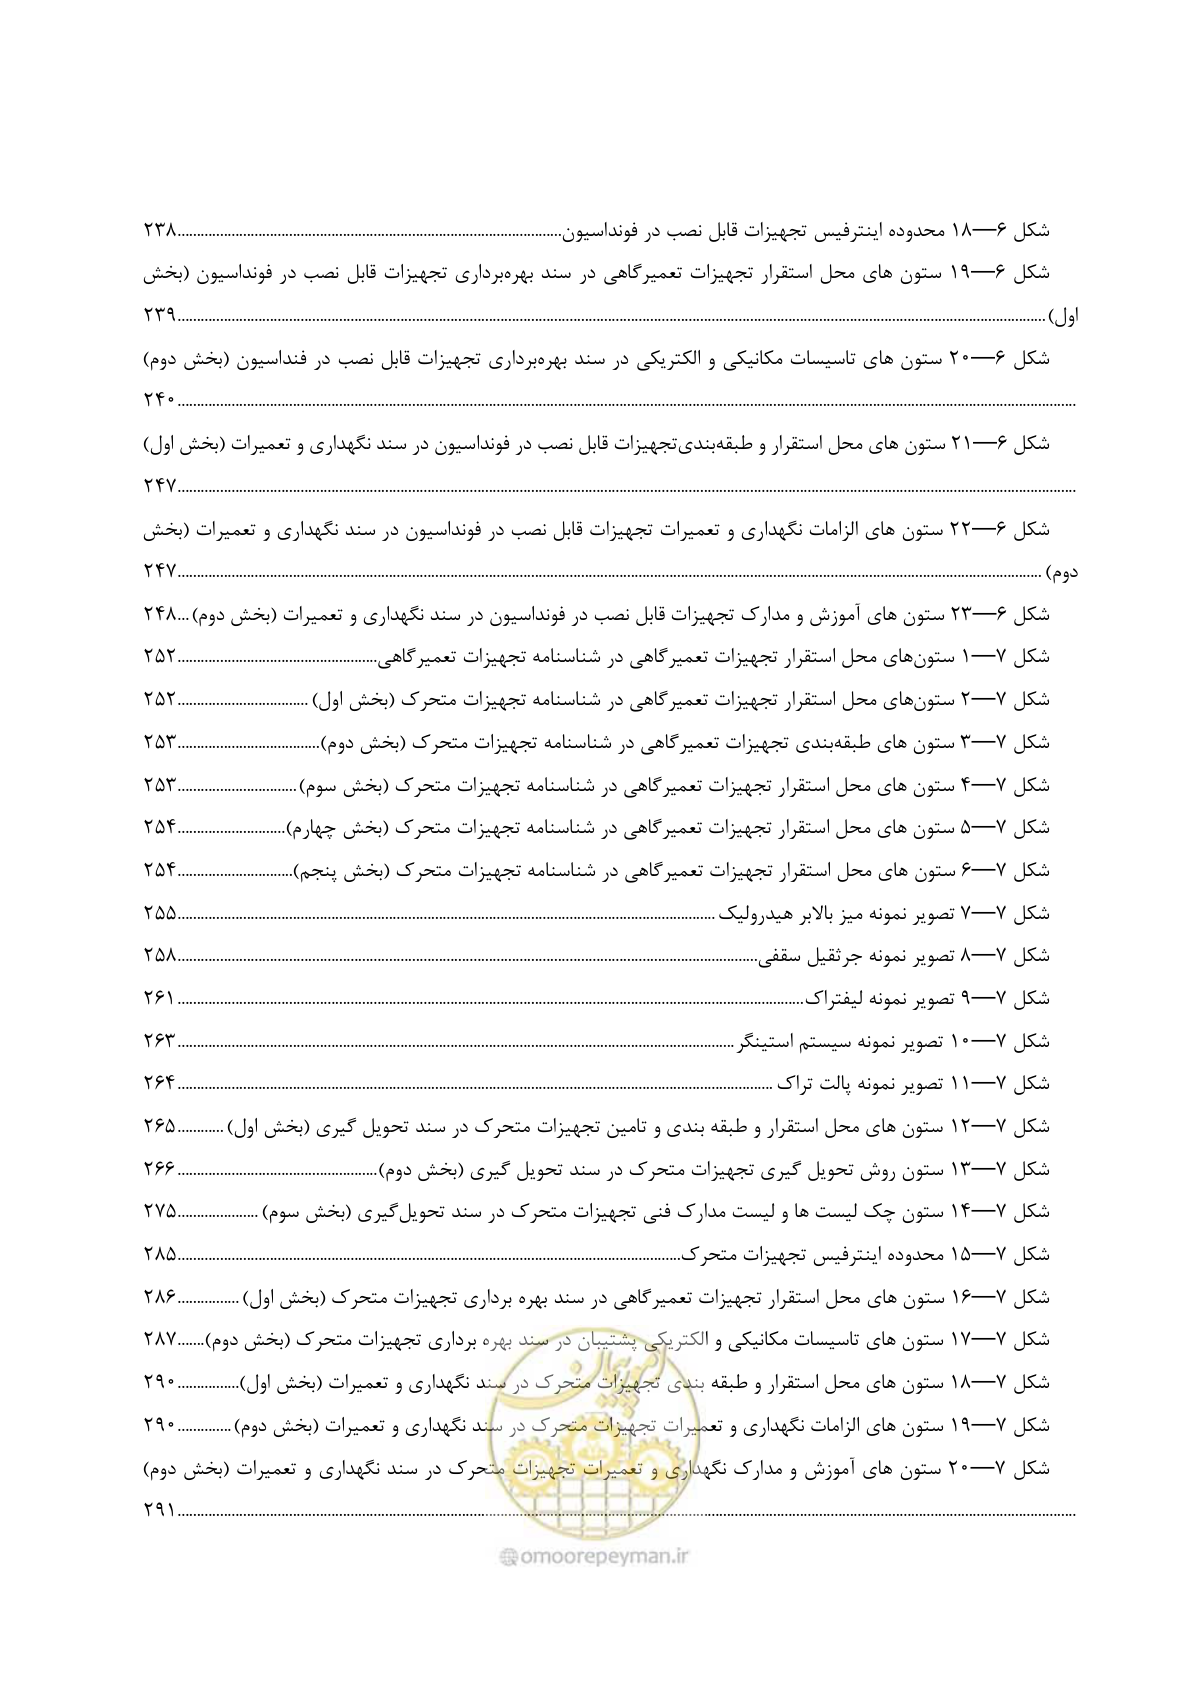 شکل ۶—۱۸ محدوده اینترفیس تجهیزات قابل نصب در فونداسیون....................۲۳۸
شکل ۶—۱۹ ستون های محل استقرار تجهیزات تعمیرگاهی در سند بهره‌برداری تجهیزات قابل نصب در فونداسیون (بخش
اول)....................۲۳۹
شکل ۶—۲۰ ستون های تاسیسات مکانیکی و الکتریکی در سند بهره‌برداری تجهیزات قابل نصب در فنداسیون (بخش دوم)
....................۲۴۰
شکل ۶—۲۱ ستون های محل استقرار و طبقه‌بندی‌تجهیزات قابل نصب در فونداسیون در سند نگهداری و تعمیرات (بخش اول)
....................۲۴۷
شکل ۶—۲۲ ستون های الزامات نگهداری و تعمیرات تجهیزات قابل نصب در فونداسیون در سند نگهداری و تعمیرات (بخش
دوم)....................۲۴۷
شکل ۶—۲۳ ستون های آموزش و مدارک تجهیزات قابل نصب در فونداسیون در سند نگهداری و تعمیرات (بخش دوم)...۲۴۸
شکل ۷—۱ ستون‌های محل استقرار تجهیزات تعمیرگاهی در شناسنامه تجهیزات تعمیرگاهی....................۲۵۲
شکل ۷—۲ ستون‌های محل استقرار تجهیزات تعمیرگاهی در شناسنامه تجهیزات متحرک (بخش اول)....................۲۵۲
شکل ۷—۳ ستون های طبقه‌بندی تجهیزات تعمیرگاهی در شناسنامه تجهیزات متحرک (بخش دوم)....................۲۵۳
شکل ۷—۴ ستون های محل استقرار تجهیزات تعمیرگاهی در شناسنامه تجهیزات متحرک (بخش سوم)....................۲۵۳
شکل ۷—۵ ستون های محل استقرار تجهیزات تعمیرگاهی در شناسنامه تجهیزات متحرک (بخش چهارم)....................۲۵۴
شکل ۷—۶ ستون های محل استقرار تجهیزات تعمیرگاهی در شناسنامه تجهیزات متحرک (بخش پنجم)....................۲۵۴
شکل ۷—۷ تصویر نمونه میز بالابر هیدرولیک....................۲۵۵
شکل ۷—۸ تصویر نمونه جرثقیل سقفی....................۲۵۸
شکل ۷—۹ تصویر نمونه لیفتراک....................۲۶۱
شکل ۷—۱۰ تصویر نمونه سیستم استینگر....................۲۶۳
شکل ۷—۱۱ تصویر نمونه پالت تراک....................۲۶۴
شکل ۷—۱۲ ستون های محل استقرار و طبقه بندی و تامین تجهیزات متحرک در سند تحویل گیری (بخش اول)............۲۶۵
شکل ۷—۱۳ ستون روش تحویل گیری تجهیزات متحرک در سند تحویل گیری (بخش دوم)....................۲۶۶
شکل ۷—۱۴ ستون چک لیست ها و لیست مدارک فنی تجهیزات متحرک در سند تحویل‌گیری (بخش سوم)....................۲۷۵
شکل ۷—۱۵ محدوده اینترفیس تجهیزات متحرک....................۲۸۵
شکل ۷—۱۶ ستون های محل استقرار تجهیزات تعمیرگاهی در سند بهره برداری تجهیزات متحرک (بخش اول)................۲۸۶
شکل ۷—۱۷ ستون های تاسیسات مکانیکی و الکتریکی پشتیبان در سند بهره برداری تجهیزات متحرک (بخش دوم).......۲۸۷
شکل ۷—۱۸ ستون های محل استقرار و طبقه بندی تجهیزات متحرک در سند نگهداری و تعمیرات (بخش اول)...............۲۹۰
شکل ۷—۱۹ ستون های الزامات نگهداری و تعمیرات تجهیزات متحرک در سند نگهداری و تعمیرات (بخش دوم)..............۲۹۰
شکل ۷—۲۰ ستون های آموزش و مدارک نگهداری و تعمیرات تجهیزات متحرک در سند نگهداری و تعمیرات (بخش دوم)
....................۲۹۱
امور پیمان
@omoorepeyman.ir